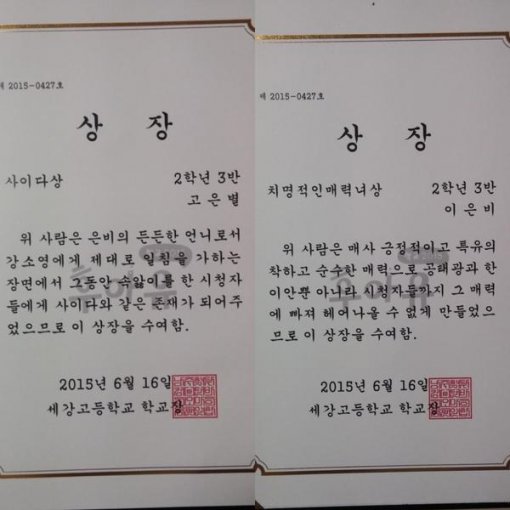 제 2015-0427호
상 장
사이다상 2학년 3반
고은별
위 사람은 은비의 든든한 언니로서
강소영에게 제대로 일침을 가하는
장면에서 그동안 속앓이를 한 시청자
들에게 사이다와 같은 존재가 되어주
었으므로 이 상장을 수여함.
후아유
2015년 6월 16일
세강고등학교 학교장
제 2015-0427호
상 장
치명적인매력녀상 2학년 3반
이은비
위 사람은 매사 긍정적이고 특유의
착하고 순수한 매력으로 공태광과 한
이안뿐 아니라 시청자들까지 그 매력
에 빠져 헤어나올 수 없게 만들었으
므로 이 상장을 수여함.
후아유
2015년 6월 16일
세강고등학교 학교장